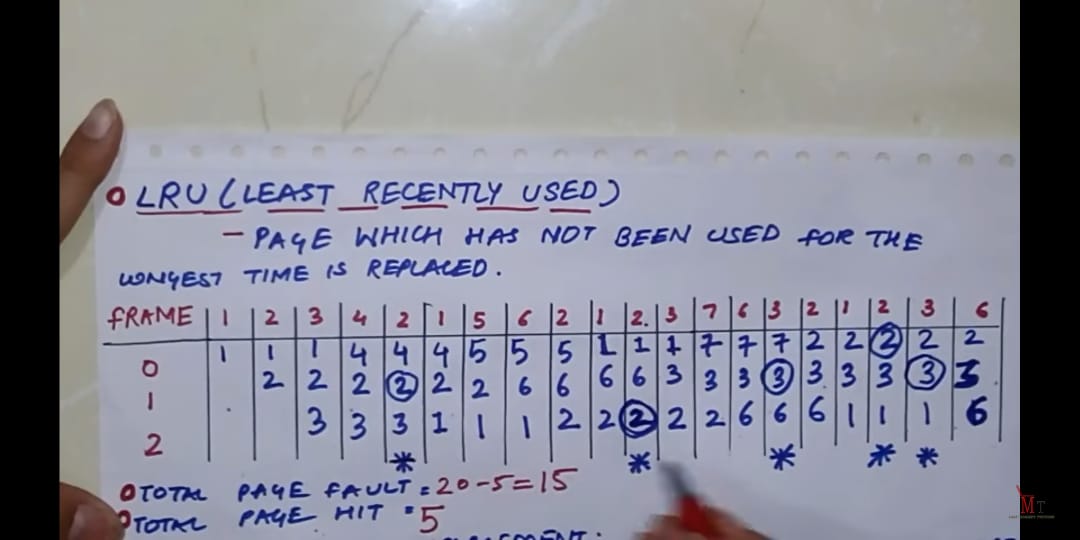 O LRU (LEAST RECENTLY USED)
- PAGE WHICH HAS NOT BEEN USED FOR THE
LONGEST TIME IS REPLACED.
FRAME 1 2 3 4 2 1 5 6 2 1 2. 3 7 6 3 2 1 2 3 6
0 1 1 1 4 4 4 5 5 5 1 1 1 7 7 7 2 2 2 2 2
1 2 2 2 2 2 2 6 6 6 6 3 3 3 3 3 3 3 3 3
2 3 3 3 1 1 1 2 2 2 2 2 6 6 6 1 1 1 6
* * * * *
O TOTAL PAGE FAULT = 20-5=15
O TOTAL PAGE HIT = 5
MT